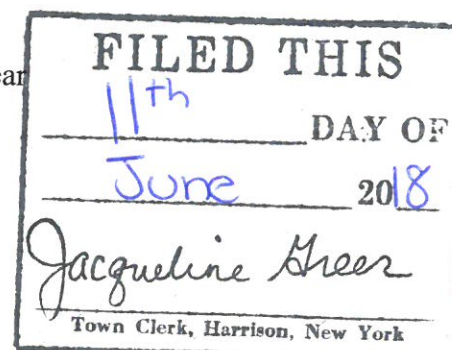 ear
FILED THIS
11th DAY OF
June 2018
Jacqueline Greer
Town Clerk, Harrison, New York